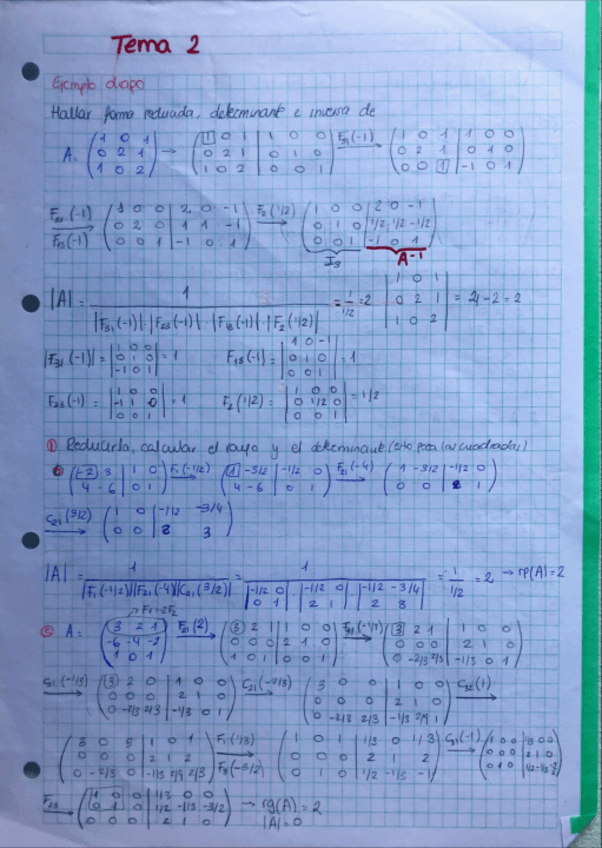 Tema 2
Ejemplo diapo
Hallar forma reducida, determinante e inversa de
A= (1 0 1 / 0 2 1 / 1 0 2) → (1 0 1 | 1 0 0 / 0 2 1 | 0 1 0 / 1 0 2 | 0 0 1) F31(-1) → (1 0 1 | 1 0 0 / 0 2 1 | 0 1 0 / 0 0 1 | -1 0 1)
F23(-1) F13(-1) → (1 0 0 | 2 0 -1 / 0 2 0 | 1 1 -1 / 0 0 1 | -1 0 1) F2(1/2) → (1 0 0 | 2 0 -1 / 0 1 0 | 1/2 1/2 -1/2 / 0 0 1 | -1 0 1)
I3 A-1
|A| = 1 / |F31(-1)|·|F23(-1)|·|F13(-1)|·|F2(1/2)| = 1 / 1/2 = 2 |1 0 1 / 0 2 1 / 1 0 2| = 4-2 = 2
|F31(-1)| = |1 0 0 / 0 1 0 / -1 0 1| = 1 F13(-1) = |1 0 -1 / 0 1 0 / 0 0 1| = 1
F23(-1) = |1 0 0 / -1 1 0 / 0 0 1| = 1 F2(1/2) = |1 0 0 / 0 1/2 0 / 0 0 1| = 1/2
① Reducirla, calcular el rango y el determinant (esto para las cuadradas)
(-2 3 | 1 0 / 4 -6 | 0 1) F1(-1/2) → (1 -3/2 | -1/2 0 / 4 -6 | 0 1) F21(-4) → (1 -3/2 | -1/2 0 / 0 0 | 2 1)
C21(3/2) → (1 0 | -1/2 -3/4 / 0 0 | 2 3)
|A| = 1 / |F1(-1/2)||F21(-4)||C21(3/2)| = 1 / |-1/2 0 / 0 1| |-1/2 0 / 2 1| |-1/2 -3/4 / 2 3| = 1 / 1/2 = 2 → rg(A)=2
F1=-2F2
c A= (3 2 1 / -6 -4 -2 / 1 0 1) F21(2) → (3 2 1 | 1 0 0 / 0 0 0 | 2 1 0 / 1 0 1 | 0 0 1) → (3 2 1 | 1 0 0 / 0 0 0 | 2 1 0 / 0 -2/3 2/3 | -1/3 0 1)
C31(-1/3) → (3 2 0 | 1 0 0 / 0 0 0 | 2 1 0 / 0 -2/3 2/3 | -1/3 0 1) C21(-2/3) → (3 0 0 | 1 0 0 / 0 0 0 | 2 1 0 / 0 -2/3 2/3 | -1/3 2/9 1) C32(1) →
(3 0 3 | 1 0 1 / 0 0 0 | 2 1 2 / 0 -2/3 0 | -1/3 2/9 2/3) F1(1/3) F3(-3/2) → (1 0 1 | 1/3 0 1/3 / 0 0 0 | 2 1 2 / 0 1 0 | 1/2 -1/3 -1) C31(-1) → (1 0 0 | 1/3 0 0 / 0 0 0 | 2 1 0 / 0 1 0 | 1/2 -1/3 -3/2)
F23 → (1 0 0 | 1/3 0 0 / 0 1 0 | 1/2 -1/3 -3/2 / 0 0 0 | 2 1 0) → rg(A) = 2
|A| = 0